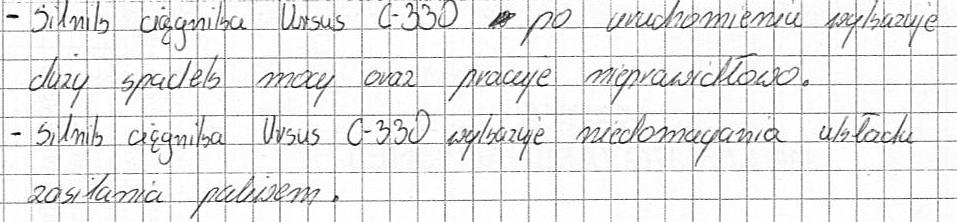 - Silnik ciągnika Ursus C-330 po uruchomieniu wykazuje
duży spadek mocy oraz pracuje nieprawidłowo.
- Silnik ciągnika Ursus C-330 wykazuje niedomagania układu
zasilania paliwem.